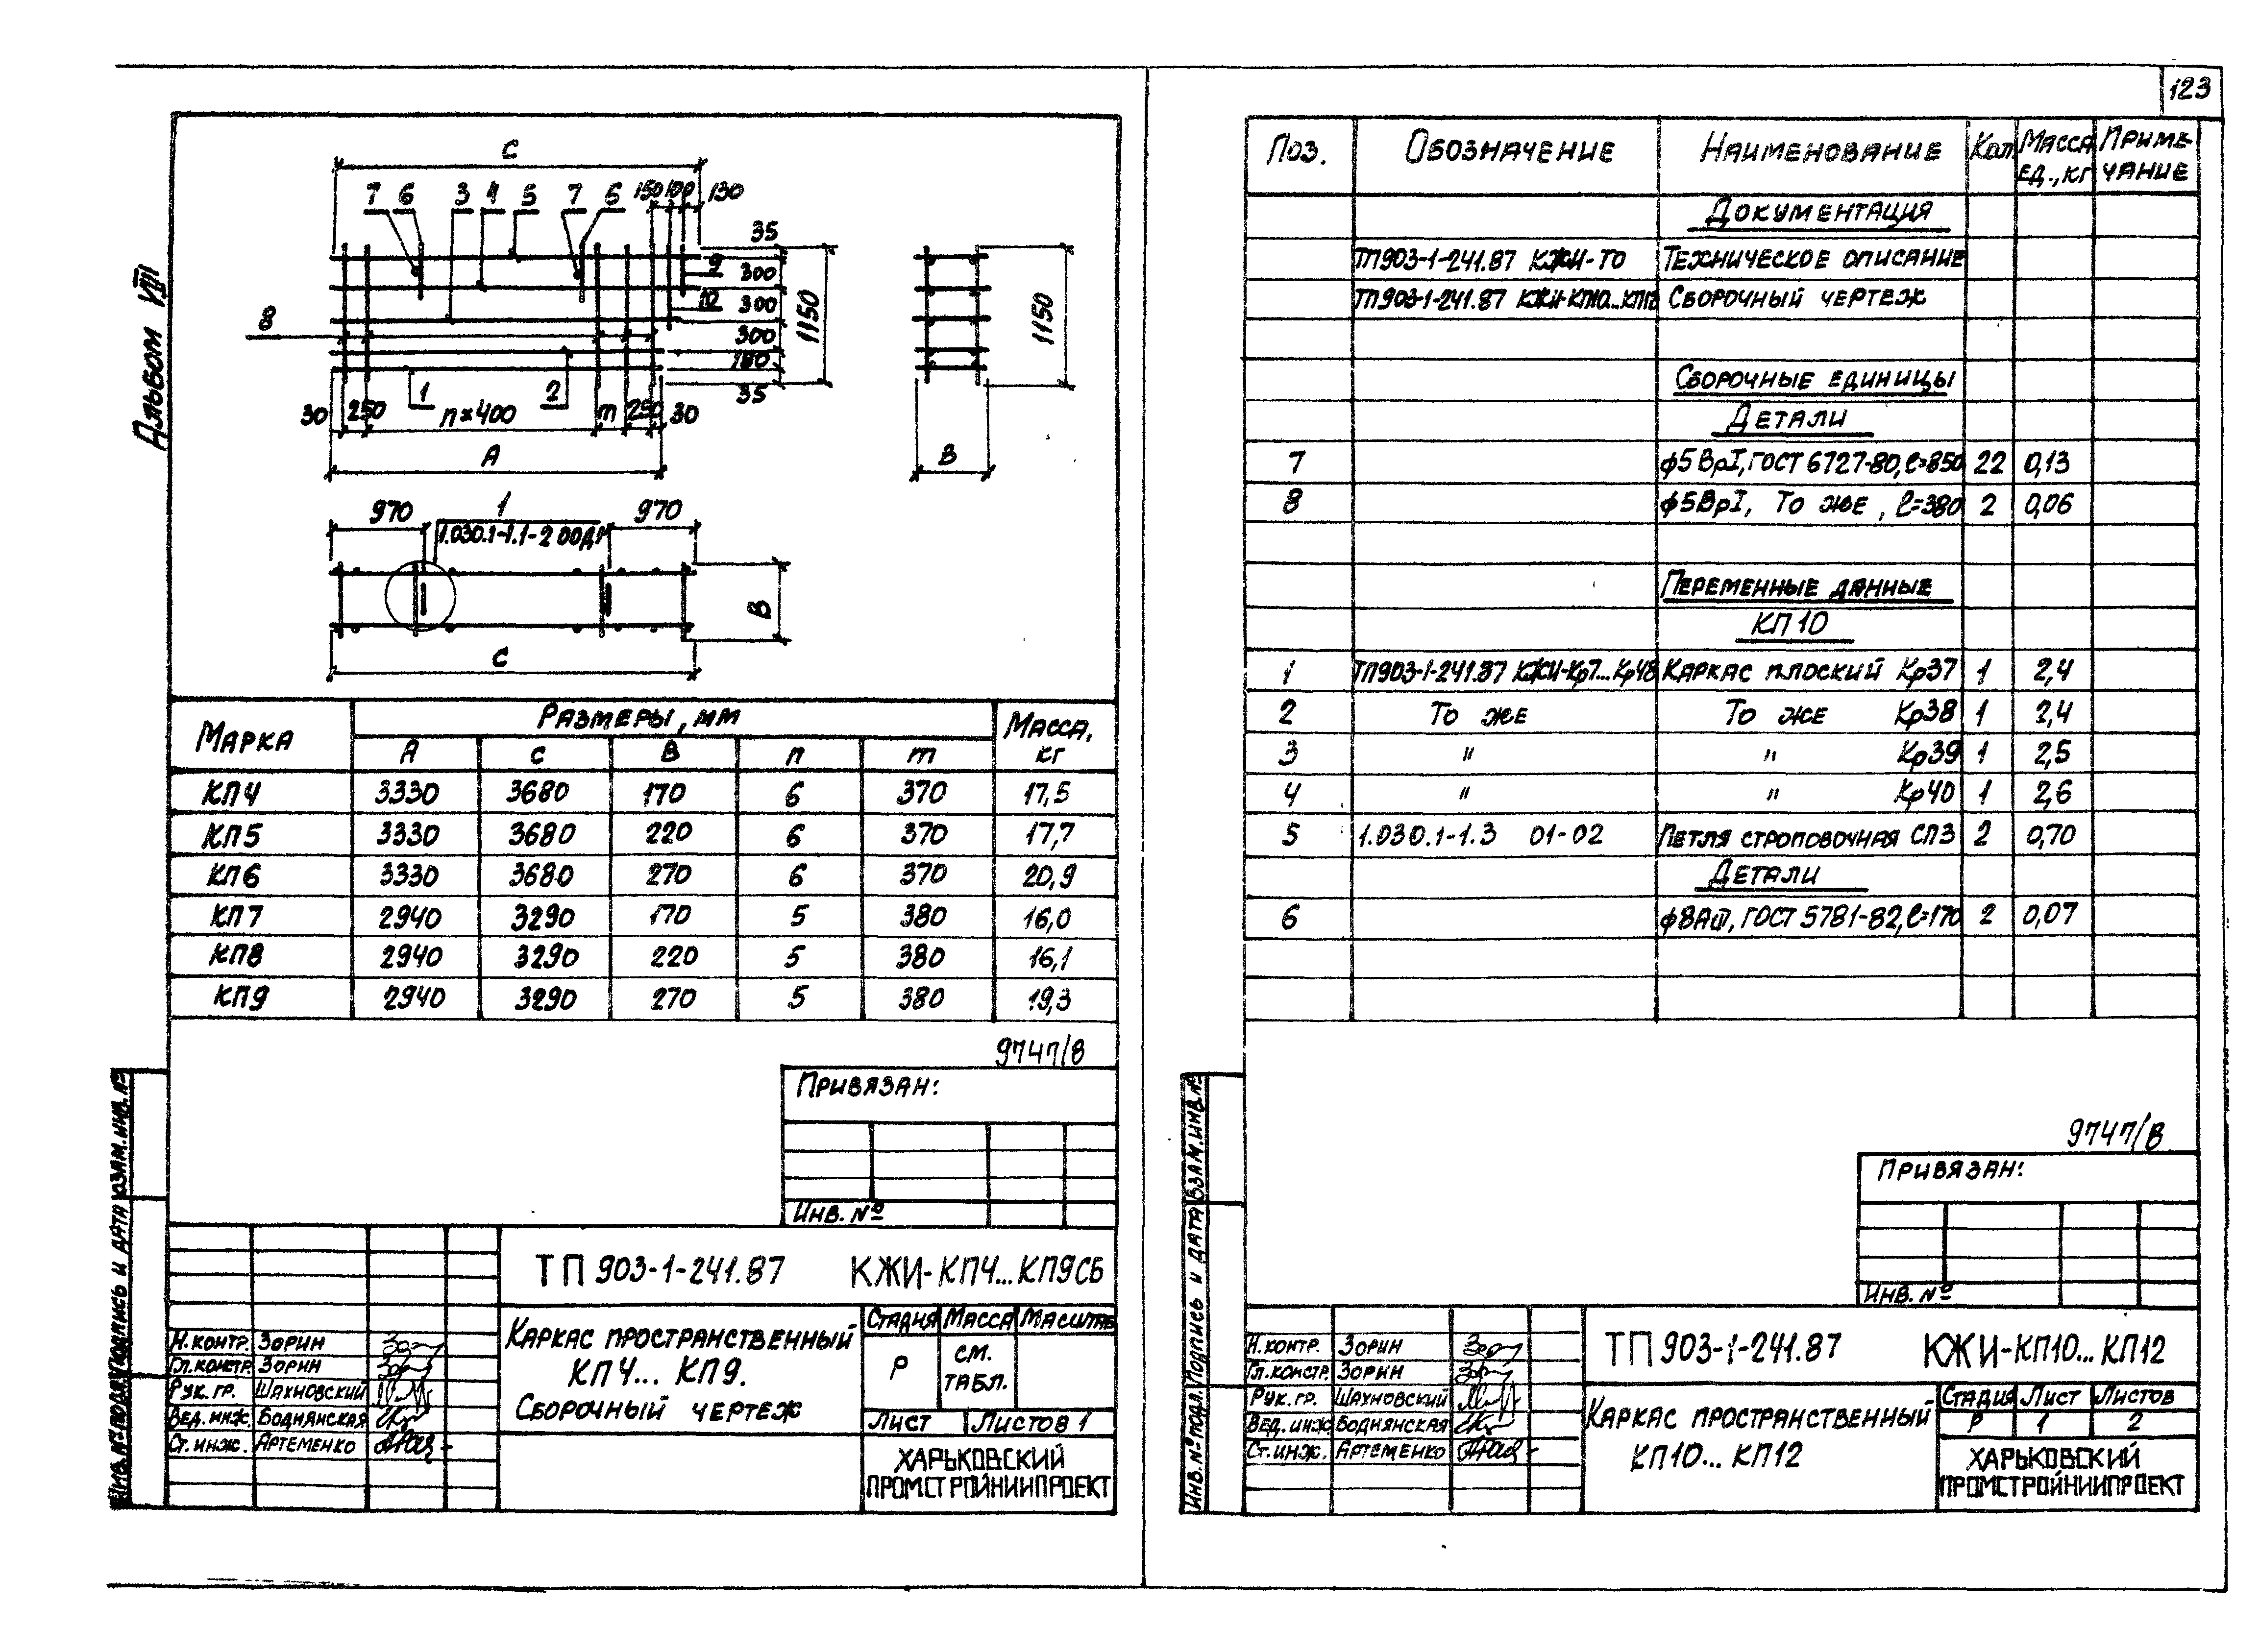 123
Альбом VIII
С
7 6 3 4 5 7 6 150 100 130
35
9
300
10
300
8
300
100
1150
1150
1 2
35
30 250 п×400 m 250 30
А
В
970 1 970
1.030.1-1.1-2 00Д1
В
С
Марка Размеры, мм Масса, кг
А С В п m
КП4 3330 3680 170 6 370 17,5
КП5 3330 3680 220 6 370 17,7
КП6 3330 3680 270 6 370 20,9
КП7 2940 3290 170 5 380 16,0
КП8 2940 3290 220 5 380 16,1
КП9 2940 3290 270 5 380 19,3
9747/8
Привязан:
Инв. №
ТП 903-1-241.87 КЖИ-КП4...КП9СБ
Каркас пространственный
КП4... КП9.
Сборочный чертеж
Стадия Масса Масштаб
Р см. табл.
Лист Листов 1
ХАРЬКОВСКИЙ
ПРОМСТРОЙНИИПРОЕКТ
Н.контр. Зорин
Гл.констр. Зорин
Рук. гр. Шахновский
Вед. инж. Боднянская
Ст. инж. Артеменко
Инв. № подл. Подпись и дата Взам. инв. №
Поз. Обозначение Наименование Кол. Масса ед., кг Примечание
Документация
ТП903-1-241.87 КЖИ-ТО Техническое описание
ТП903-1-241.87 КЖИ-КП10...КП12 Сборочный чертеж
Сборочные единицы
Детали
7 ф5ВрI, ГОСТ 6727-80, ℓ=850 22 0,13
8 ф5ВрI, То же, ℓ=380 2 0,06
Переменные данные
КП10
1 ТП903-1-241.87 КЖИ-Кр7...Кр48 Каркас плоский Кр37 1 2,4
2 То же То же Кр38 1 2,4
3 " " Кр39 1 2,5
4 " " Кр40 1 2,6
5 1.030.1-1.3 01-02 Петля строповочная СП3 2 0,70
Детали
6 ф8АIII, ГОСТ 5781-82, ℓ=170 2 0,07
9747/8
Привязан:
Инв. №
ТП 903-1-241.87 КЖИ-КП10... КП12
Каркас пространственный
КП10... КП12
Стадия Лист Листов
Р 1 2
ХАРЬКОВСКИЙ
ПРОМСТРОЙНИИПРОЕКТ
Н.контр. Зорин
Гл.констр. Зорин
Рук. гр. Шахновский
Вед. инж. Боднянская
Ст. инж. Артеменко
Инв. № подл. Подпись и дата Взам. инв. №